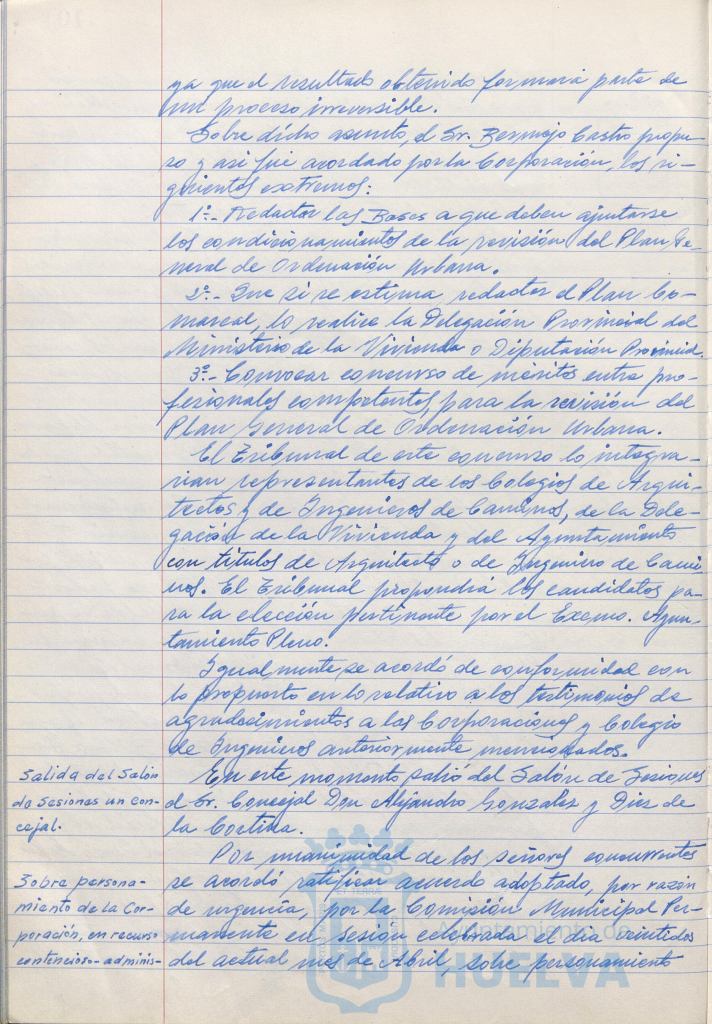 ya que el resultado obtenido formará parte de
un proceso irreversible.
Sobre dicho asunto, el Sr. Bermejo Castro propu-
so y así fué acordado por la Corporación, los si-
guientes extremos:
1º.- Redactar las Bases a que deben ajustarse
los condicionamientos de la revisión del Plan Ge-
neral de Ordenación Urbana.
2º.- Que si se estima redactar el Plan Co-
marcal, lo realice la Delegación Provincial del
Ministerio de la Vivienda o Diputación Provincial.
3º.- Convocar concurso de méritos entre pro-
fesionales competentes, para la revisión del
Plan General de Ordenación Urbana.
El Tribunal de este concurso lo integra-
rían representantes de los Colegios de Arqui-
tectos y de Ingenieros de Caminos, de la Dele-
gación de la Vivienda y del Ayuntamiento
con títulos de Arquitecto o de Ingeniero de Cami-
nos. El Tribunal propondrá los candidatos pa-
ra la elección pertinente por el Excmo. Ayun-
tamiento Pleno.
Igualmente se acordó de conformidad con
lo propuesto en lo relativo a los testimonios de
agradecimientos a las Corporaciones y Colegio
de Ingenieros anteriormente mencionados.
Salida del Salón
de Sesiones un con-
cejal.
En este momento salió del Salón de Sesiones
el Sr. Concejal Don Alejandro González y Díez de
la Cortina.
Sobre persona-
miento de la Cor-
poración, en recurso
contencioso-adminis-
Por unanimidad de los señores concurrentes
se acordó ratificar acuerdo adoptado, por razón
de urgencia, por la Comisión Municipal Per-
manente en sesión celebrada el día veintidos
del actual mes de Abril, sobre personamiento
Ayuntamiento de
HUELVA